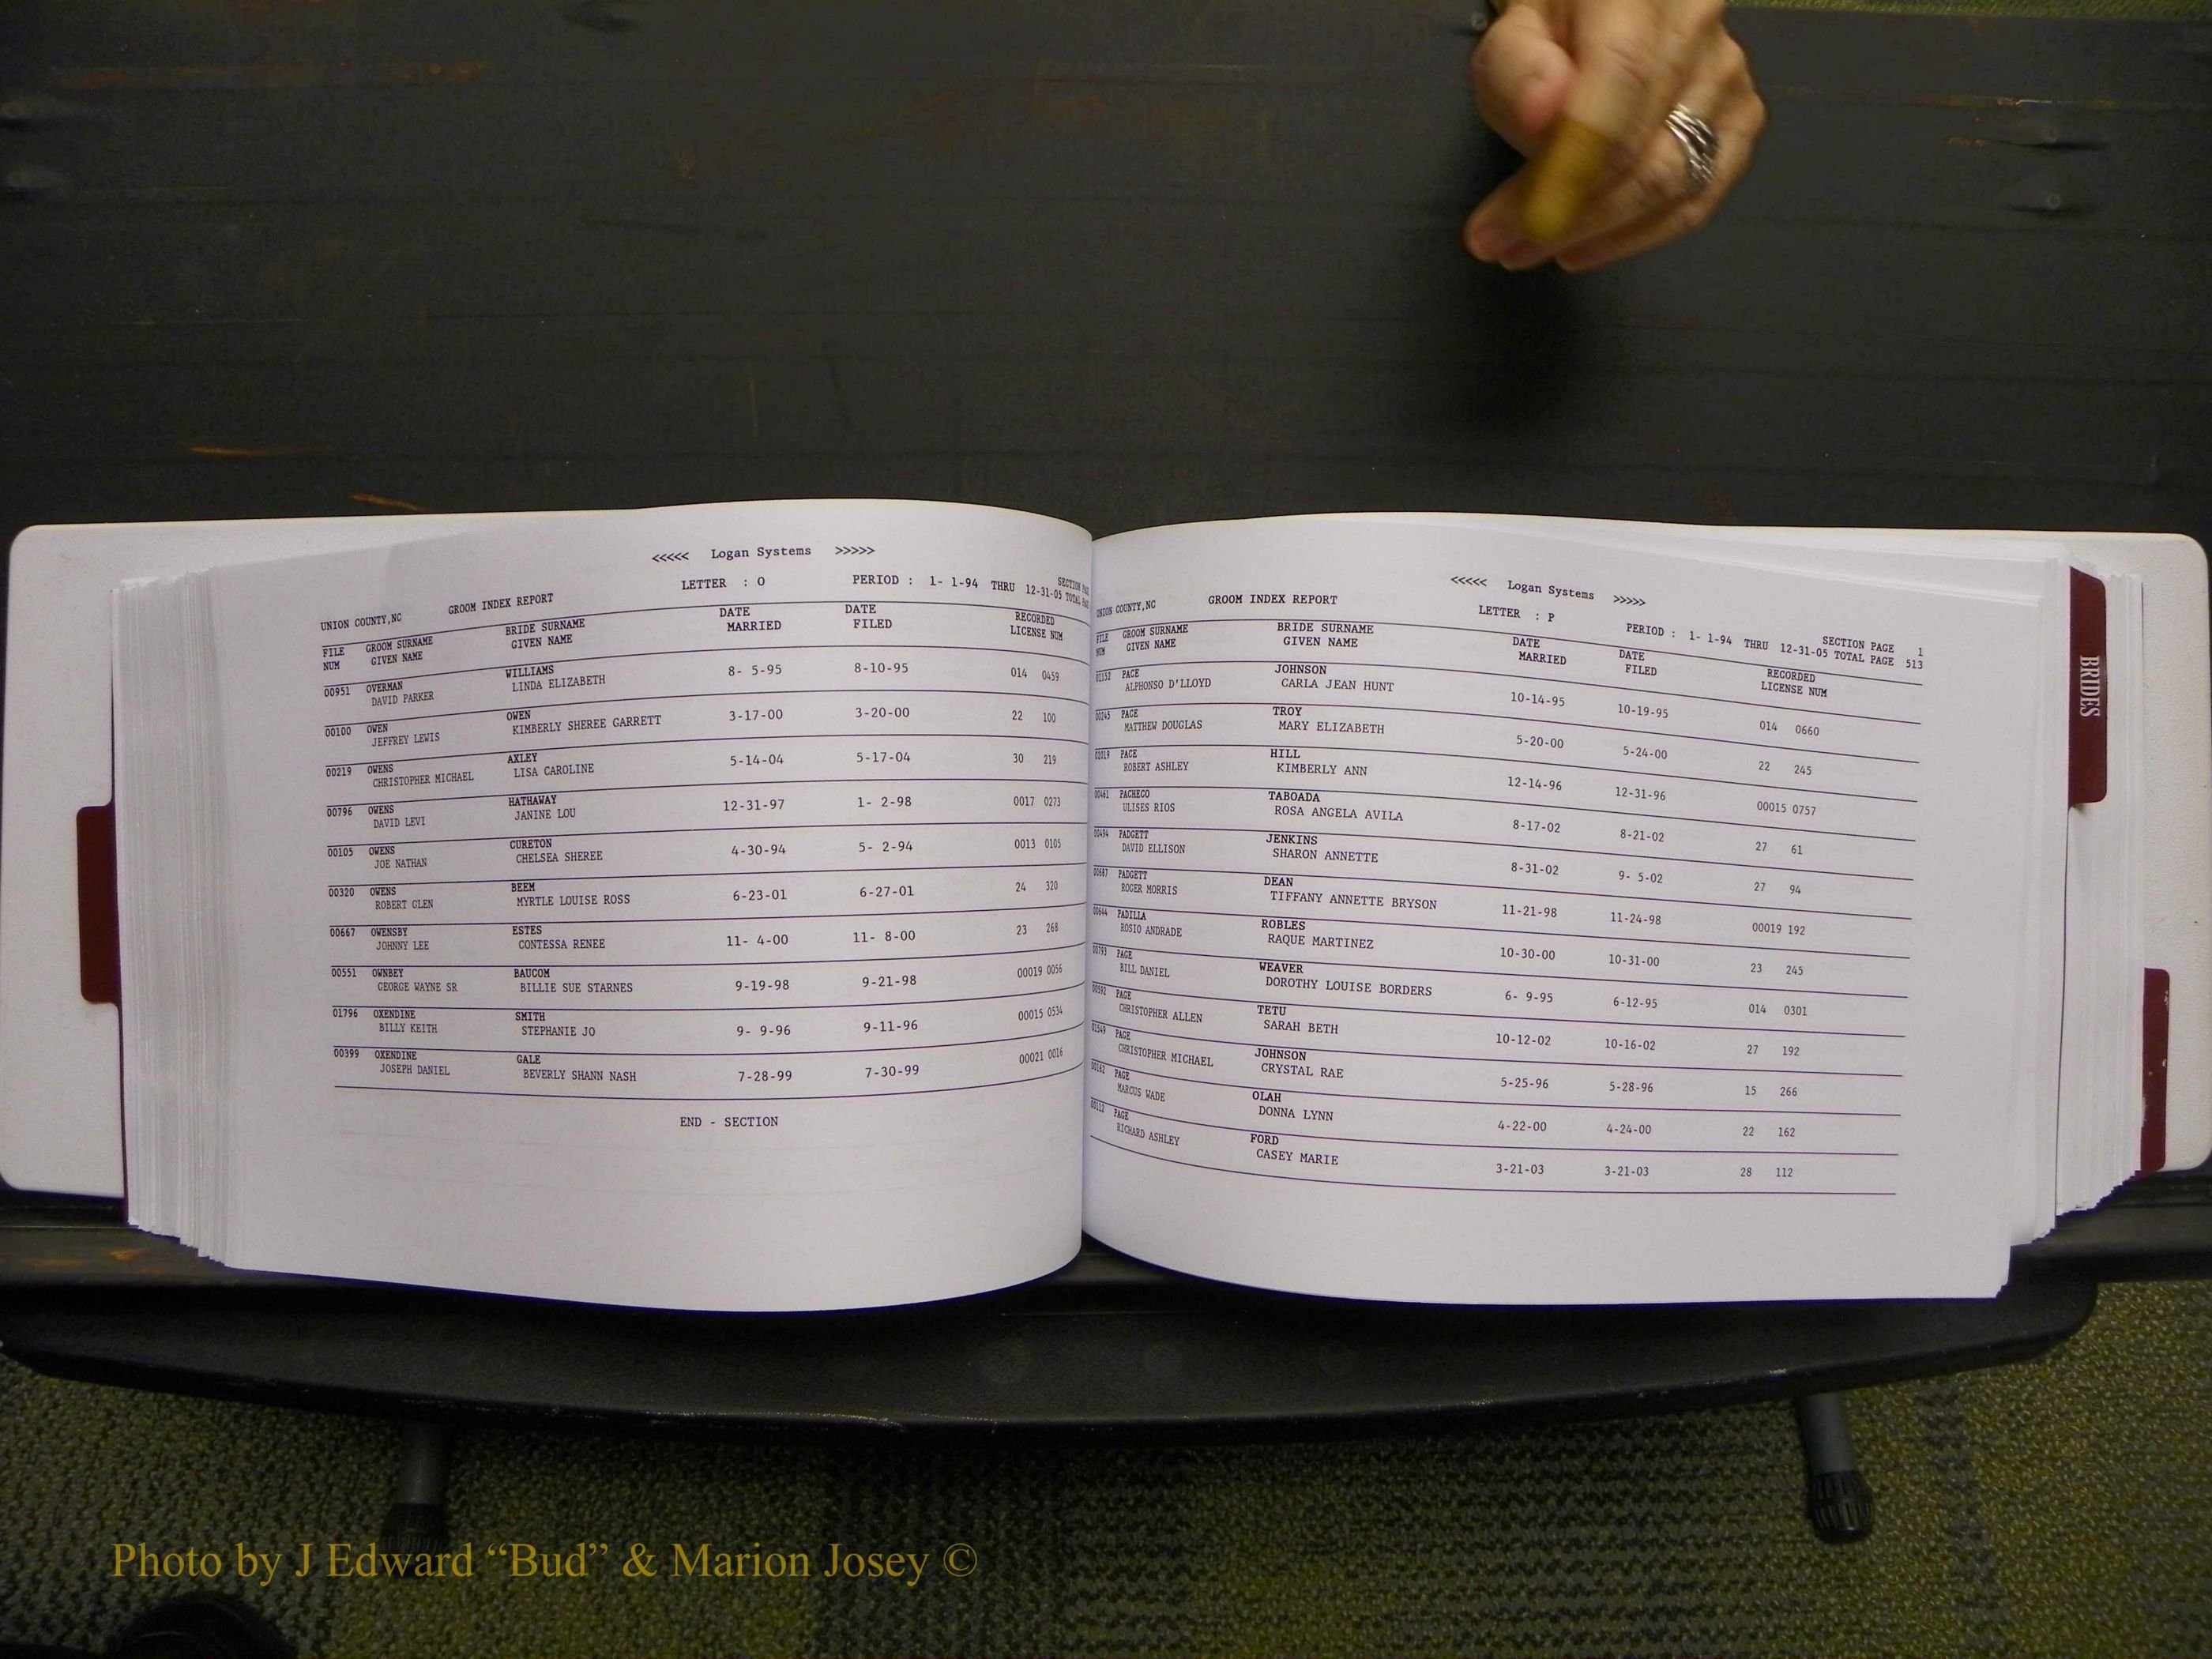 <<<<< Logan Systems >>>>>
LETTER : O PERIOD : 1- 1-94 THRU 12-31-05 TOTAL
SECTION
UNION COUNTY,NC GROOM INDEX REPORT
FILE NUM GROOM SURNAME GIVEN NAME BRIDE SURNAME GIVEN NAME DATE MARRIED DATE FILED RECORDED LICENSE NUM
00951 OVERMAN WILLIAMS 8- 5-95 8-10-95 014 0459
DAVID PARKER LINDA ELIZABETH
00100 OWEN OWEN 3-17-00 3-20-00 22 100
JEFFREY LEWIS KIMBERLY SHEREE GARRETT
00219 OWENS AXLEY 5-14-04 5-17-04 30 219
CHRISTOPHER MICHAEL LISA CAROLINE
00796 OWENS HATHAWAY 12-31-97 1- 2-98 0017 0273
DAVID LEVI JANINE LOU
00105 OWENS CURETON 4-30-94 5- 2-94 0013 0105
JOE NATHAN CHELSEA SHEREE
00320 OWENS BEEM 6-23-01 6-27-01 24 320
ROBERT GLEN MYRTLE LOUISE ROSS
00667 OWENSBY ESTES 11- 4-00 11- 8-00 23 268
JOHNNY LEE CONTESSA RENEE
00551 OWNBEY BAUCOM 9-19-98 9-21-98 00019 0056
GEORGE WAYNE SR BILLIE SUE STARNES
01796 OXENDINE SMITH 9- 9-96 9-11-96 00015 0534
BILLY KEITH STEPHANIE JO
00399 OXENDINE GALE 7-28-99 7-30-99 00021 0016
JOSEPH DANIEL BEVERLY SHANN NASH
END - SECTION
<<<<< Logan Systems >>>>>
UNION COUNTY,NC GROOM INDEX REPORT LETTER : P SECTION PAGE 1
PERIOD : 1- 1-94 THRU 12-31-05 TOTAL PAGE 513
FILE NUM GROOM SURNAME GIVEN NAME BRIDE SURNAME GIVEN NAME DATE MARRIED DATE FILED RECORDED LICENSE NUM
01152 PACE JOHNSON 10-14-95 10-19-95 014 0660
ALPHONSO D'LLOYD CARLA JEAN HUNT
00245 PACE TROY 5-20-00 5-24-00 22 245
MATTHEW DOUGLAS MARY ELIZABETH
02019 PACE HILL 12-14-96 12-31-96 00015 0757
ROBERT ASHLEY KIMBERLY ANN
00461 PACHECO TABOADA 8-17-02 8-21-02 27 61
ULISES RIOS ROSA ANGELA AVILA
00494 PADGETT JENKINS 8-31-02 9- 5-02 27 94
DAVID ELLISON SHARON ANNETTE
00687 PADGETT DEAN 11-21-98 11-24-98 00019 192
ROGER MORRIS TIFFANY ANNETTE BRYSON
00644 PADILLA ROBLES 10-30-00 10-31-00 23 245
ROSIO ANDRADE RAQUE MARTINEZ
00793 PAGE WEAVER 6- 9-95 6-12-95 014 0301
BILL DANIEL DOROTHY LOUISE BORDERS
00592 PAGE TETU 10-12-02 10-16-02 27 192
CHRISTOPHER ALLEN SARAH BETH
01549 PAGE JOHNSON 5-25-96 5-28-96 15 266
CHRISTOPHER MICHAEL CRYSTAL RAE
00162 PAGE OLAH 4-22-00 4-24-00 22 162
MARCUS WADE DONNA LYNN
00112 PAGE FORD 3-21-03 3-21-03 28 112
RICHARD ASHLEY CASEY MARIE
BRIDES
Photo by J Edward “Bud” & Marion Josey ©